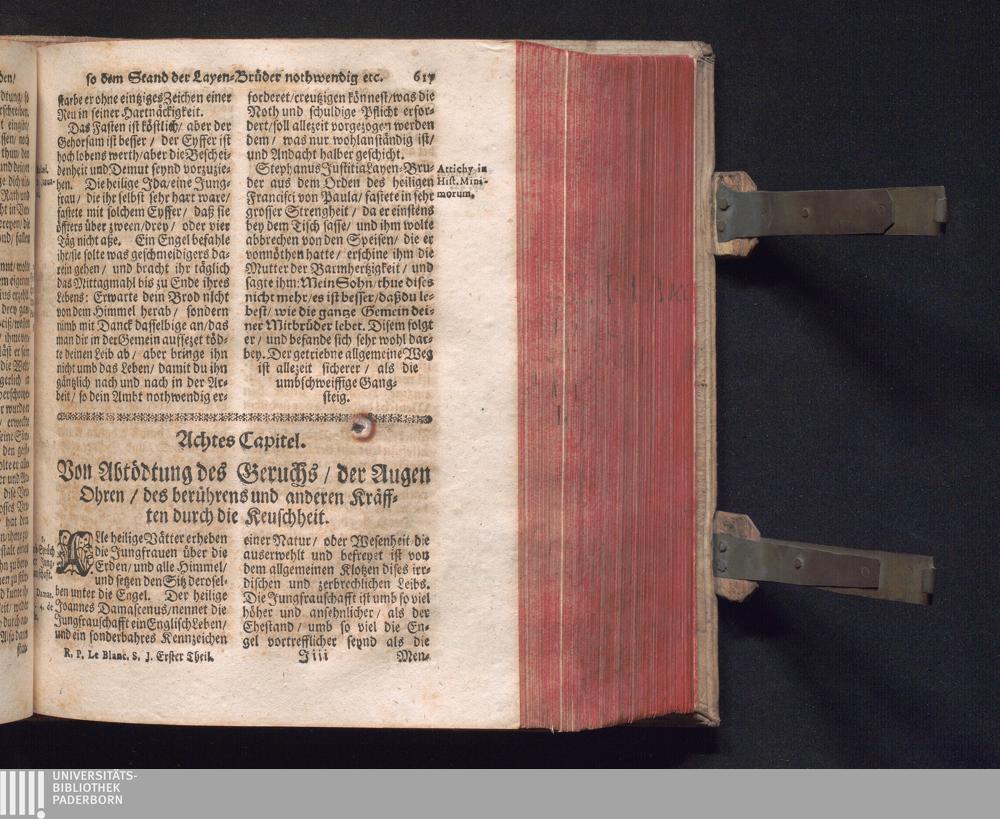 so dem Stand der Layen-Brüder nothwendig etc. 617
starbe er ohne eintziges Zeichen einer
Reu in seiner Hartnäckigkeit.
Das Fasten ist köstlich / aber der
Gehorsam ist besser / der Eyffer ist
hoch lobens werth / aber die Beschei-
denheit und Demut seynd vorzuzie-
hen. Die heilige Ida / eine Jung-
frau / die ihr selbst sehr hart ware /
fastete mit solchem Eyffer / daß sie
öffters über zween / drey / oder vier
Täg nicht aße. Ein Engel befahle
ihr / sie solte was geschmeidigers da-
rein gehen / und bracht ihr täglich
das Mittagmahl bis zu Ende ihres
Lebens: Erwarte dein Brod nicht
von dem Himmel herab / sondern
nimb mit Danck dasselbige an / das
man dir in der Gemein auffezet töd-
te deinen Leib ab / aber bringe ihn
nicht umb das Leben / damit du ihn
gäntzlich nach und nach in der Ar-
beit / so dein Ambt nothwendig er-
forderet / creutzigen könnest / was die
Noth und schuldige Pflicht erfor-
dert / soll allezeit vorgezogen werden
dem / was nur wohlanständig ist /
und Andacht halber geschicht.
Stephanus Justitia Layen-Bru-
der aus dem Orden des heiligen
Francisci von Paula / fastete in sehr
grosser Strengheit / da er einstens
bey dem Tisch sasse / und ihm wolte
abbrechen von den Speisen / die er
vonnöthen hatte / erschine ihm die
Mutter der Barmhertzigkeit / und
sagte ihm: Mein Sohn / thue dises
nicht mehr / es ist besser / daß du le-
best / wie die gantze Gemein dei-
ner Mitbrüder lebet. Disem folgt
er / und befande sich sehr wohl dar-
bey. Der getriebne allgemeine Weg
ist allezeit sicherer / als die
umbschweiffige Gang-
steig.
Attichy in
Hist. Mini-
morum.
Achtes Capitel.
Von Abtödtung des Geruchs / der Augen
Ohren / des berührens und anderen Kräff-
ten durch die Keuschheit.
Alle heilige Vätter erheben
die Jungfrauen über die
Erden / und alle Himmel /
und setzen den Sitz derosel-
ben unter die Engel. Der heilige
Joannes Damascenus / nennet die
Jungfrauschafft ein Englisch Leben /
und ein sonderbahres Kennzeichen
einer Natur / oder Wesenheit die
auserwehlt und befreyet ist von
dem allgemeinen Klotzen dises irr-
dischen und zerbrechlichen Leibs.
Die Jungfrauschafft ist umb so viel
höher und ansehnlicher / als der
Ehestand / umb so viel die En-
gel vortrefflicher seynd als die
R. P. Le Blanc. S. J. Erster Theil.
Iiii
Men-
UNIVERSITÄTS-
BIBLIOTHEK
PADERBORN